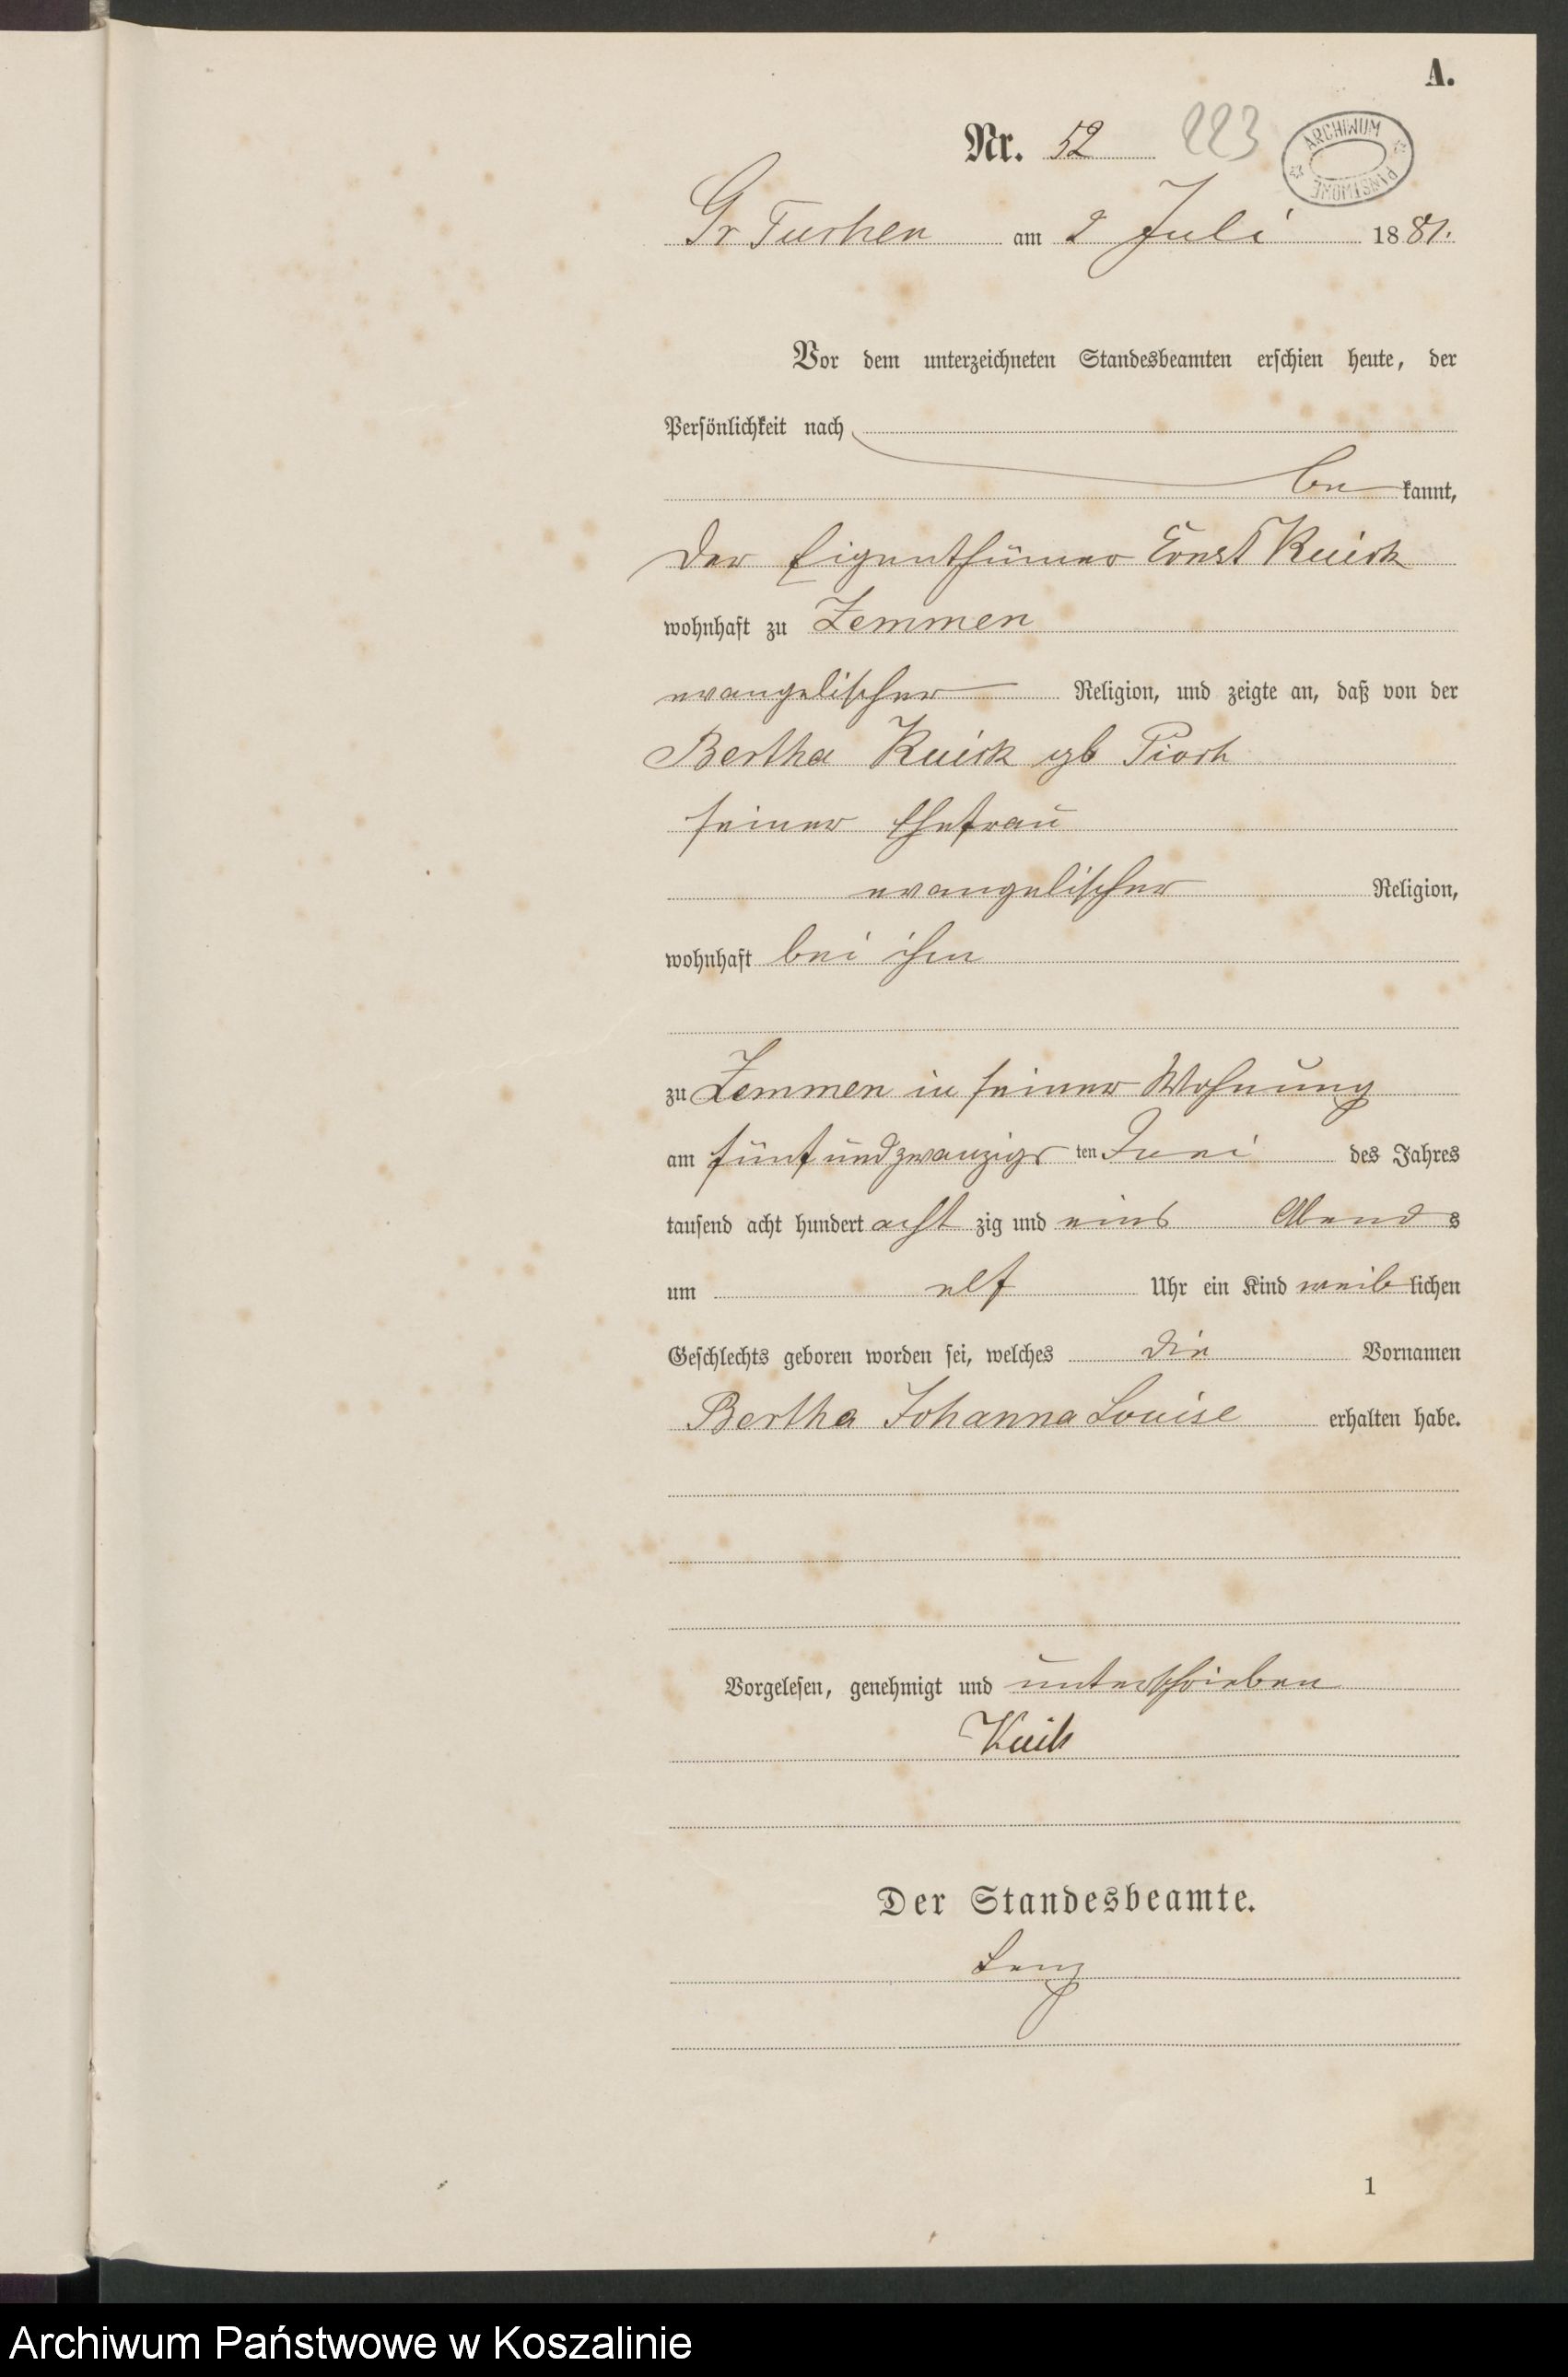 A.
Nr. 52 223
ARCHIWUM PAŃSTWOWE
Gr Tuchen am 2 Juli 1881.
Vor dem unterzeichneten Standesbeamten erschien heute, der
Persönlichkeit nach
be kannt,
der Eigenthümer Ernst
wohnhaft zu Zemmen
evangelischer Religion, und zeigte an, daß von der
Bertha gb
seiner Ehefrau
evangelischer Religion,
wohnhaft bei ihm
zu Zemmen in seiner Wohnung
am fünfundzwanzigs ten Juni des Jahres
tausend acht hundert acht zig und eins Abend s
um elf Uhr ein Kind weib lichen
Geschlechts geboren worden sei, welches die Vornamen
Bertha Johanna Louise erhalten habe.
Vorgelesen, genehmigt und unterschrieben
Der Standesbeamte.
Lenz
1
Archiwum Państwowe w Koszalinie